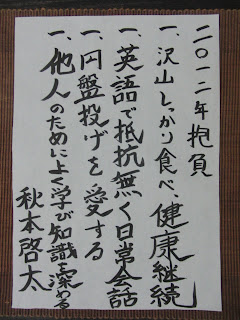 二〇一二年抱負
一、沢山しっかり食べ、健康継続
一、英語で抵抗無く日常会話
一、円盤投げを愛する
一、他人のためによく学び知識を深める
秋本啓太